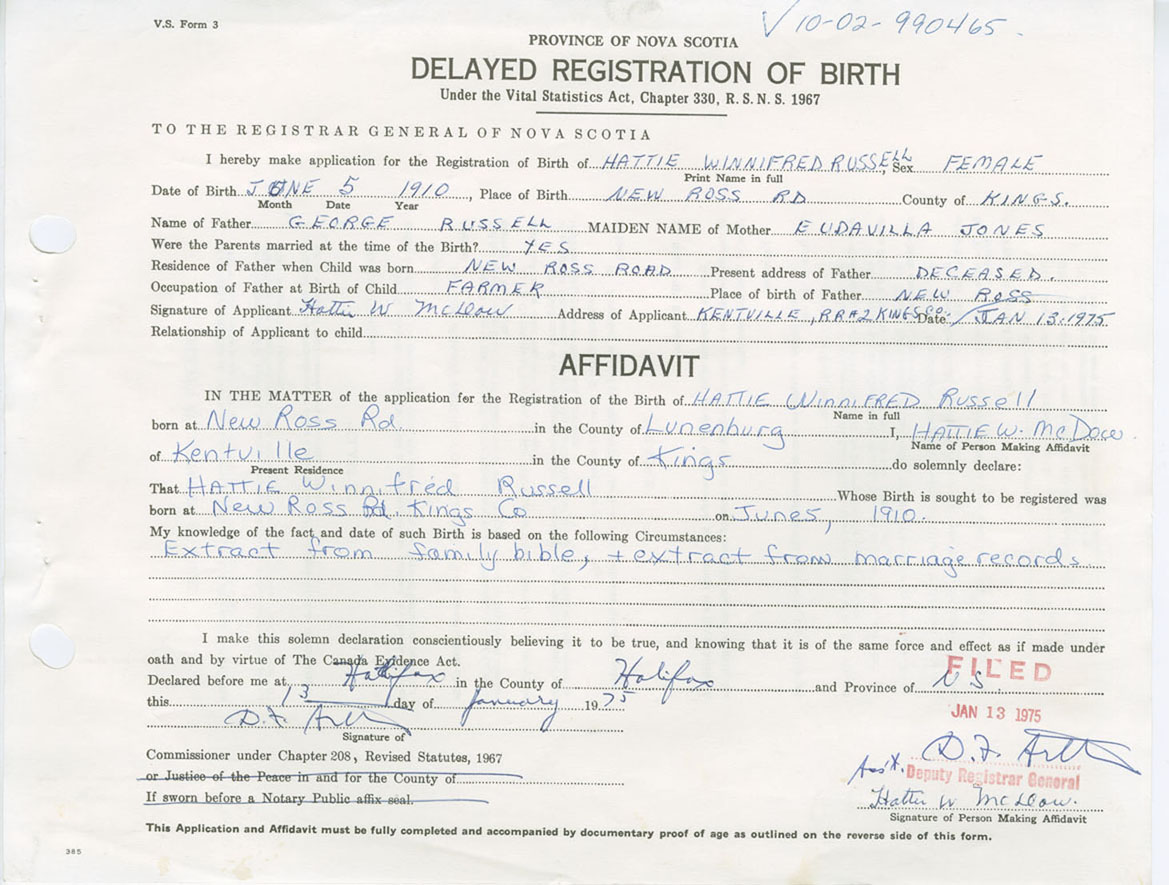 V.S. Form 3
√ 10-02-990465.
PROVINCE OF NOVA SCOTIA
DELAYED REGISTRATION OF BIRTH
Under the Vital Statistics Act, Chapter 330, R. S. N. S. 1967
TO THE REGISTRAR GENERAL OF NOVA SCOTIA
I hereby make application for the Registration of Birth of HATTIE WINNIFRED RUSSELL, Sex FEMALE
Print Name in full
Date of Birth JUNE 5 1910, Place of Birth NEW ROSS RD County of KINGS.
Month Date Year
Name of Father GEORGE RUSSELL MAIDEN NAME of Mother EUDAVILLA JONES
Were the Parents married at the time of the Birth? YES
Residence of Father when Child was born NEW ROSS ROAD Present address of Father DECEASED.
Occupation of Father at Birth of Child FARMER Place of birth of Father NEW ROSS
Signature of Applicant Hattie W McDow Address of Applicant KENTVILLE, RR#2 KINGS CO. Date JAN 13.1975
Relationship of Applicant to child
AFFIDAVIT
IN THE MATTER of the application for the Registration of the Birth of HATTIE WINNIFRED Russell
Name in full
born at New Ross Rd. in the County of Lunenburg I, HATTIE W. McDow
Name of Person Making Affidavit
of Kentville in the County of Kings do solemnly declare:
Present Residence
That HATTIE Winnifred Russell Whose Birth is sought to be registered was
born at New Ross Rd. Kings Co on June 5, 1910.
My knowledge of the fact and date of such Birth is based on the following Circumstances:
Extract from family bible, + extract from marriage records
I make this solemn declaration conscientiously believing it to be true, and knowing that it is of the same force and effect as if made under
oath and by virtue of The Canada Evidence Act.
FILED
Declared before me at Halifax in the County of Halifax and Province of N S.
this 13 day of January 1975
JAN 13 1975
D.F.
Signature of
D.F.
Commissioner under Chapter 208, Revised Statutes, 1967
Ass't. Deputy Registrar General
or Justice of the Peace in and for the County of
Hattie W McDow.
If sworn before a Notary Public affix seal.
Signature of Person Making Affidavit
This Application and Affidavit must be fully completed and accompanied by documentary proof of age as outlined on the reverse side of this form.
385